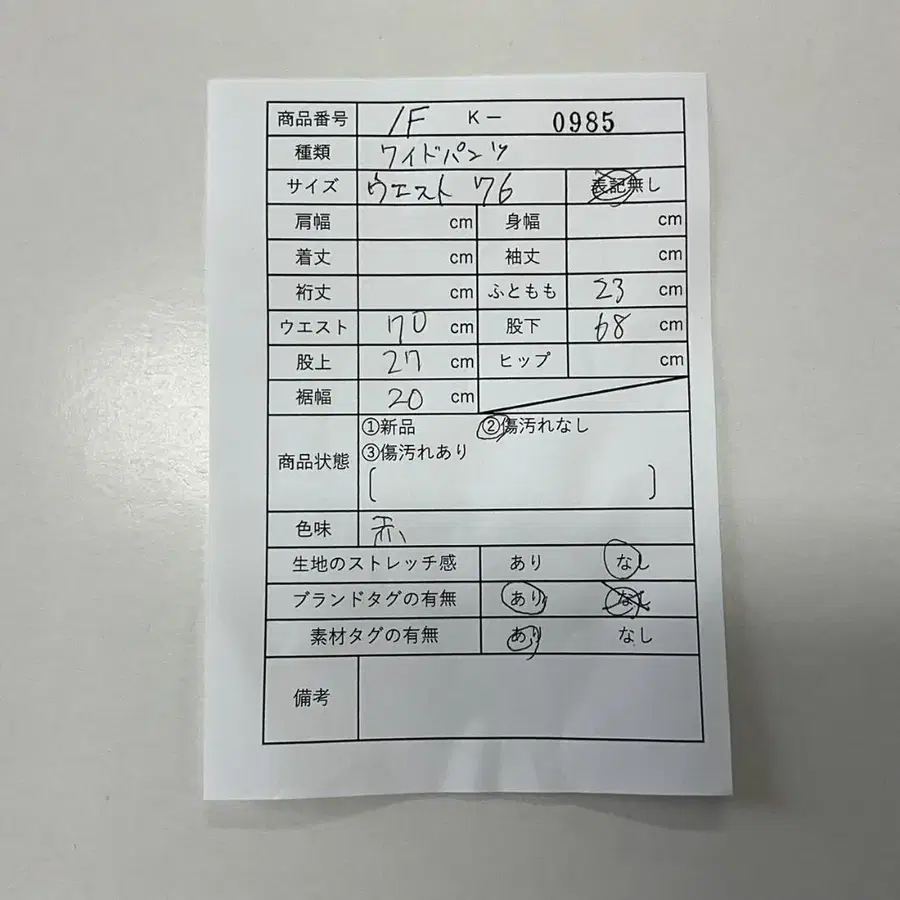 商品番号 1F K− 0985
種類 ワイドパンツ
サイズ ウエスト 76 表記無し
肩幅 cm 身幅 cm
着丈 cm 袖丈 cm
裄丈 cm ふともも 23 cm
ウエスト 70 cm 股下 68 cm
股上 27 cm ヒップ cm
裾幅 20 cm
商品状態 ①新品 ②傷汚れなし
③傷汚れあり
[ ]
色味 赤
生地のストレッチ感 あり なし
ブランドタグの有無 あり なし
素材タグの有無 あり なし
備考